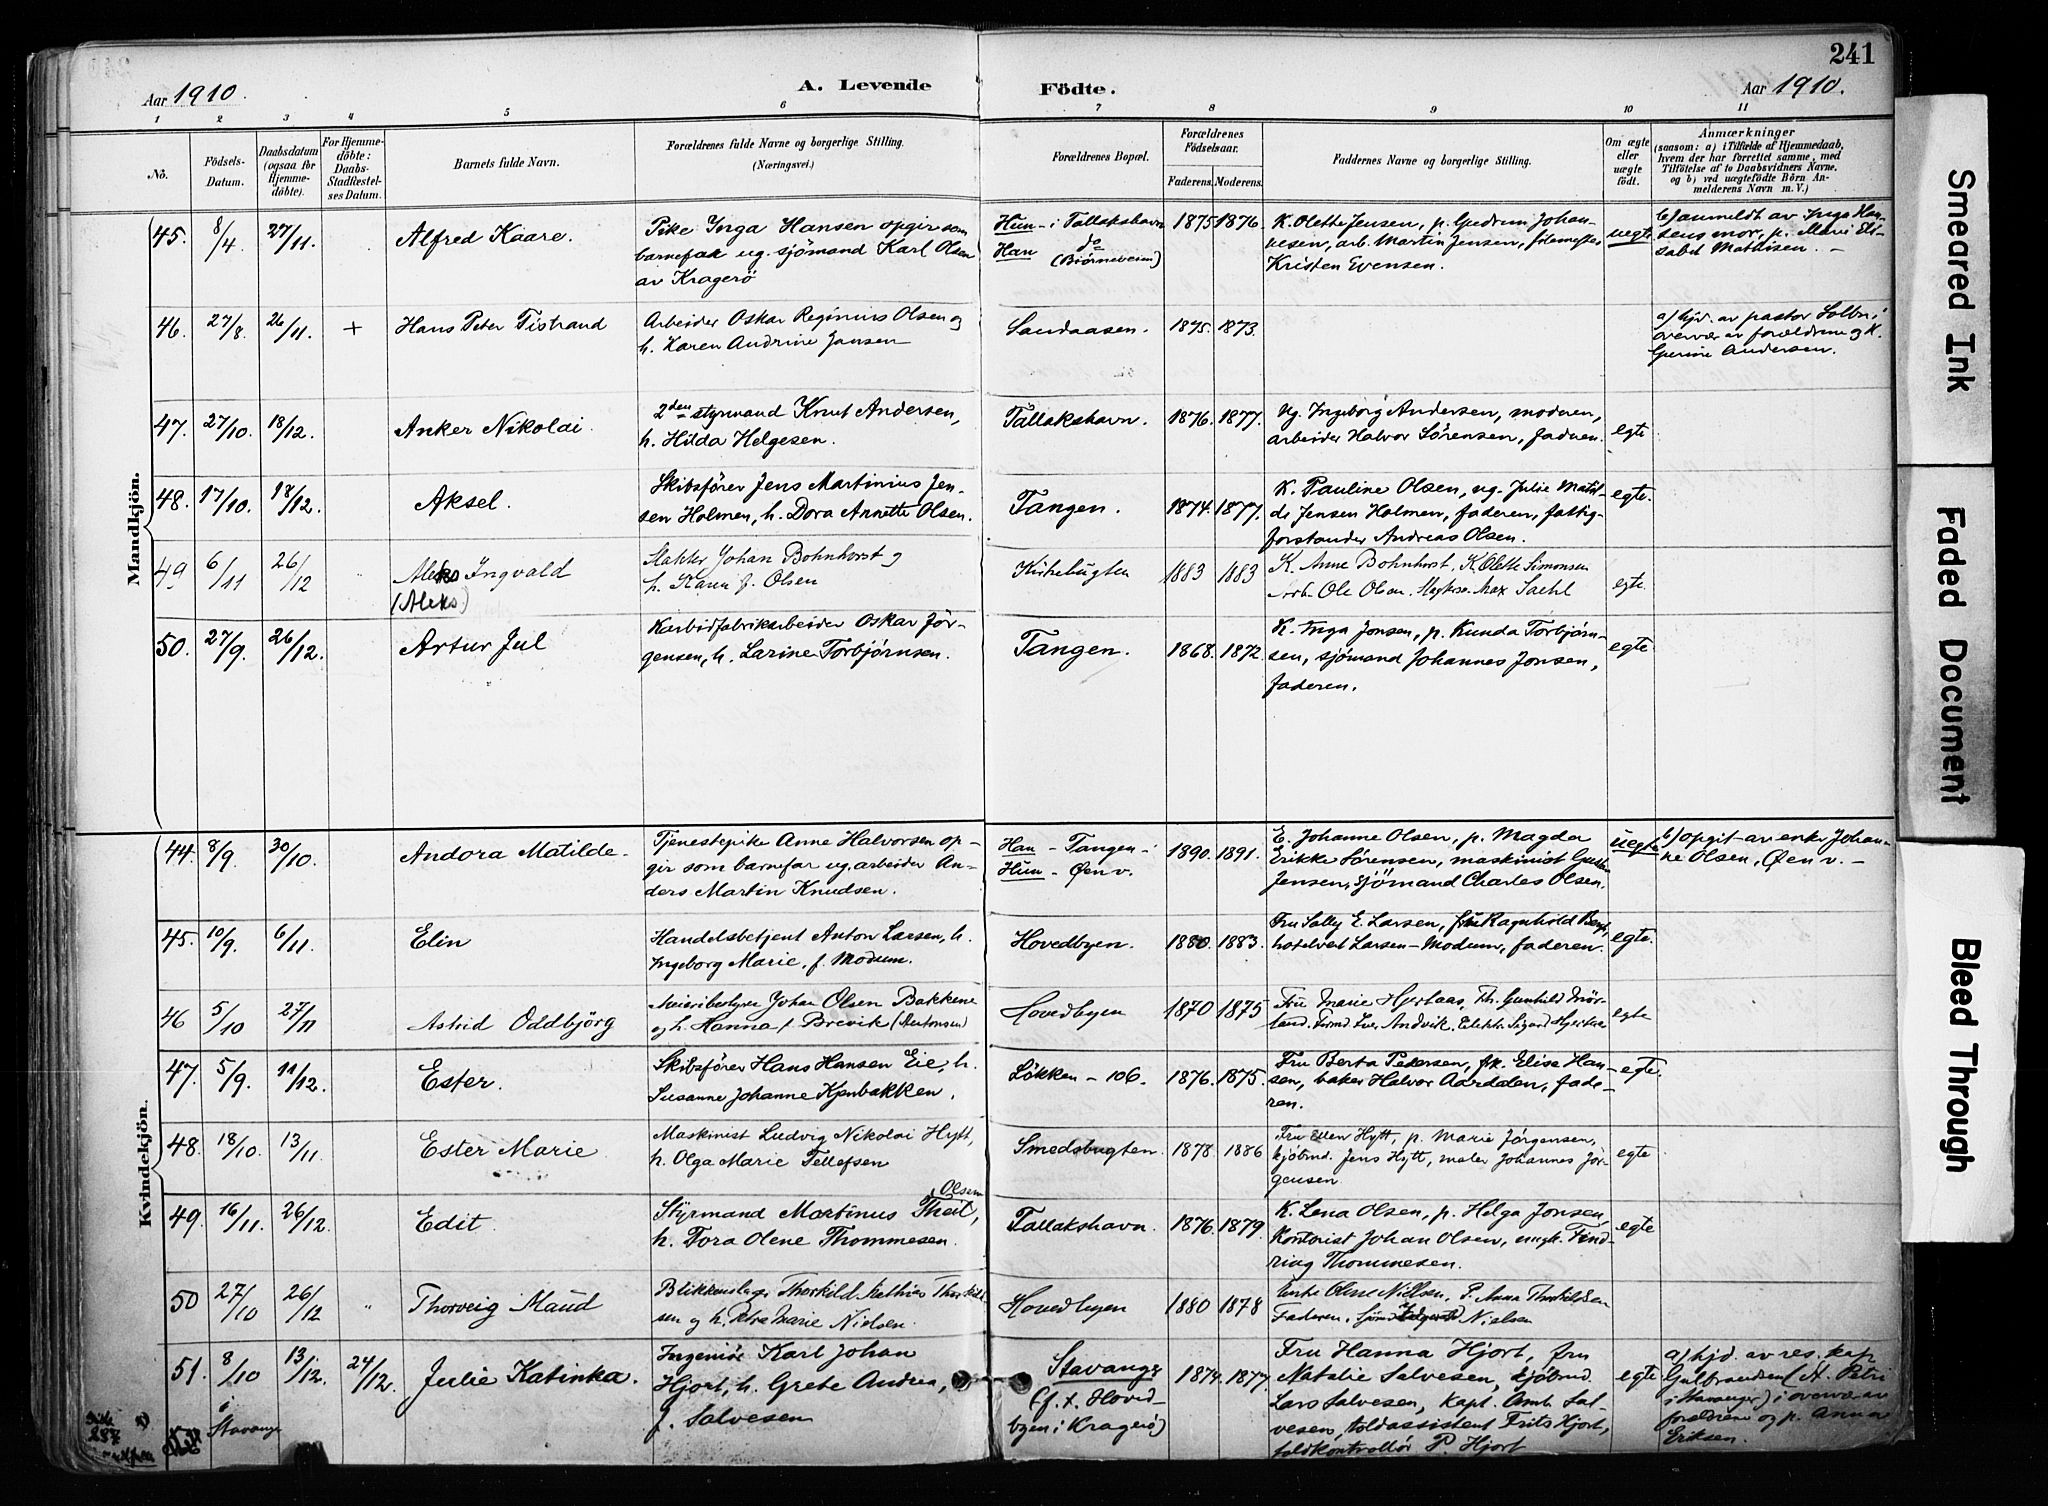 241
Aar 1910.
A. Levende Födte.
Aar 1910.
1 2 3 4 5 6 7 8 9 10 11
No.
Födsels-Datum.
Daabsdatum (ogsaa for Hjemme-döbte).
For Hjemme-döbte: Daabs-Stadfæstel-ses Datum.
Barnets fulde Navn.
Forældrenes fulde Navne og borgerlige Stilling.
(Næringsvei.)
Forældrenes Bopæl.
Forældrenes Födselsaar.
Faderens. Moderens.
Faddernes Navne og borgerlige Stilling.
Om ægte eller uægte födt.
Anmærkninger
(saasom: a) i Tilfælde af Hjemmedaab,
hvem der har forrettet samme, med
Tilföielse af to Daabsvidners Navne.
og b) ved uægtefödte Börn An-
melderens Navn m. V.)
Mandkjön.
45. 8/4 27/11. Alfred Kaare.
Pike Inga Hansen opgir som
barnefar ug. sjömand Karl Olsen
av Kragerö
Hun - i Tallakshavn
Han do (Björneveien)
1875 1876.
K. Olette Jensen, p. Gudrun Johan-
nesen, arb. Martin Jensen,
Kristen Evensen.
uegte
b) anmeldt av Inga Han-
sens mor, p. Marie Eli-
sabet Mathisen. -
46. 27/8. 26/11. + Hans Peter Tistrand
Arbeider Oskar Reginius Olsen og
h. Karen Andrine Jansen
Sandaasen. 1875. 1873.
a) hjd. av pastor Solbu i
overvær av forældrene og K.
Gurine Andersen.
47. 27/10. 18/12. Anker Nikolai.
2den styrmand Knut Andersen,
h. Hilda Helgesen.
Tallakshavn. 1876. 1877.
ug. Ingeborg Andersen, moderen,
arbeider Halvor Sörensen, faderen.
egte
48. 17/10. 18/12. Aksel.
Skibsförer Jens Martinius Jen-
sen Holmen, h. Dora Annette Olsen.
Tangen. 1874. 1877.
K. Pauline Olsen, ug. Julie Matil-
de Jensen Holmen, faderen, fattig-
forstander Andreas Olsen.
egte.
49 6/11 26/12 Ingvald
(Aleks)
Slakter Johan Bohnhorst og
h. Karen f. Olsen
Kirkebugten 1883 1883
K. Anne Bohnhorst. K. Olette Simonsen
Arb. Ole Olsen. Max Saehl
egte.
50. 27/9. 26/12. Artur Jul
Karbidfabrikarbeider Oskar Jör-
gensen, h. Larine Torbjörnsen.
Tangen. 1868. 1872.
K. Inga Jonsen, p. Kunda Torbjörn-
sen, sjömand Johannes Jonsen,
faderen.
egte.
Kvindekjön.
44. 8/9. 30/10. Andora Matilde.
Tjenestepike Anne Halvorsen op-
gir som barnefar ug. arbeider An-
ders Martin Knudsen.
Han - Tangen -
Hun - Öen v.
1890. 1891.
E. Johanne Olsen, p. Magda
Erikke Sörensen, maskinist
Jensen, sjömand Charles Olsen.
uegte
b) opgit av enke Johan-
ne Olsen, Öen v. -
45. 10/9. 6/11. Elin
Handelsbetjent Anton Larsen, h.
Ingeborg Marie, f. Modum.
Hovedbyen. 1880. 1883.
Fru Sally E. Larsen, fru Ragnhild
Larsen - Modum, faderen.
egte.
46 5/10 27/11 Astrid Oddbjörg
Meieribestyrer Johan Olsen Bakkene
og h. Hanna f. Brevik (Antonsen)
Hovedbyen 1870 1875
Fru Marie Hjertaas, Fr. Gunhild Mör-
land. Iver Andvik. Sigurd Hjertaas
egte
47. 5/9. 11/12. Ester.
Skibsförer Hans Hansen Eie, h.
Susanne Johanne Kjenbakken.
Lökken - 106. 1876. 1875.
Fru Berta Pedersen, frk. Elise Han-
sen, baker Halvor Aardalen, fade-
ren.
egte.
48. 18/10. 13/11. Ester Marie
Maskinist Ludvig Nikolai Hytt,
h. Olga Marie Tellefsen
Smedsbugten. 1878. 1886
Fru Ellen Hytt, p. Marie Jörgensen,
kjöbmd. Jens Hytt, maler Johannes Jör-
gensen
egte
49. 16/11. 26/12. Edit.
Olsen
Styrmand Martinus Theil,
h. Tora Olene Thommesen.
Tallakshavn. 1876. 1879.
K. Lena Olsen, p. Helga Jonsen,
Kontorist Johan Olsen, ungk. Find
Thommesen.
egte
50 27/10 26/12 " Thorveig Maud
Blikkenslager Thorkild Mathias Thorkild-
sen og h. Petra Marie Nielsen.
Hovedbyen 1880 1878
Enke Oline Nielsen, P. Anna Thorkildsen
Faderen. Nielsen
51. 8/10 13/12. 24/12. Julie Katinka.
i Stavanger
Ingeniör Karl Johan
Hjort, h. Grete Andrea,
f. Salvesen
Stavanger
(f. t. Hoved-
byen i Kragerö)
1874. 1877.
Fru Hanna Hjort, fru
Natalie Salvesen, kjöbmd.
Lars Salvesen, kapt. Amb. Sal-
vesen, toldassistent Frits Hjort,
toldkontrollör P. Hjort
egte
a) hjd. av res. kap
Gulbrandsen (St. Petri
i Stavanger) i overvær av
forældrene og p. Anna
Eriksen.
Side
287
Smeared Ink
Faded Document
Bleed Through